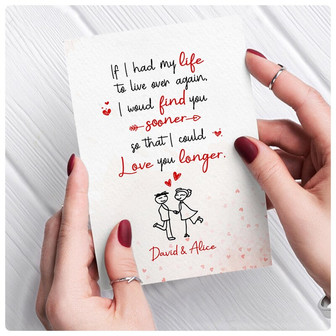 If I had my life
to live over again,
I woud find you
sooner
so that I could
Love you longer.
David & Alice